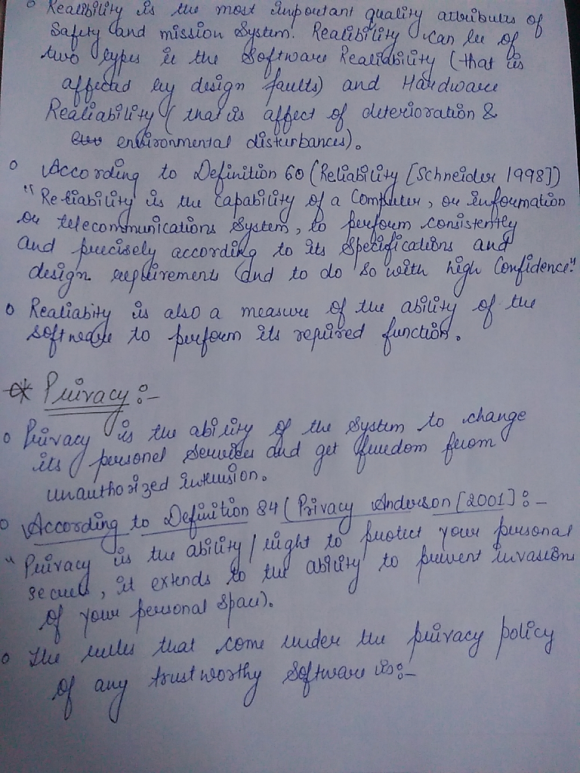 o Realibility is the most important quality attributes of
Safety and mission System. Realibility can be of
two types ie the Software Realiability (that is
affected by design faults) and Hardware
Realiability (that is affect of deterioration &
environmental disturbances).
o According to Definition 60 (Reliability [Schneider 1998])
"Reliability is the capability of a Computer, or information
or telecommunications System, to perform consistently
and precisely according to its Specifications and
design requirements and to do so with high Confidence."
o Realiabity is also a measure of the ability of the
Software to perform its required function.
* Privacy :-
o Privacy is the ability of the System to change
its personel Services and get freedom from
unauthorized intrusion.
o According to Definition 84 (Privacy Anderson [2001] :-
"Privacy is the ability/right to protect your personal
secrets, it extends to the ability to prevent invasions
of your personal space).
o The rules that come under the privacy policy
of any trustworthy Software is:-